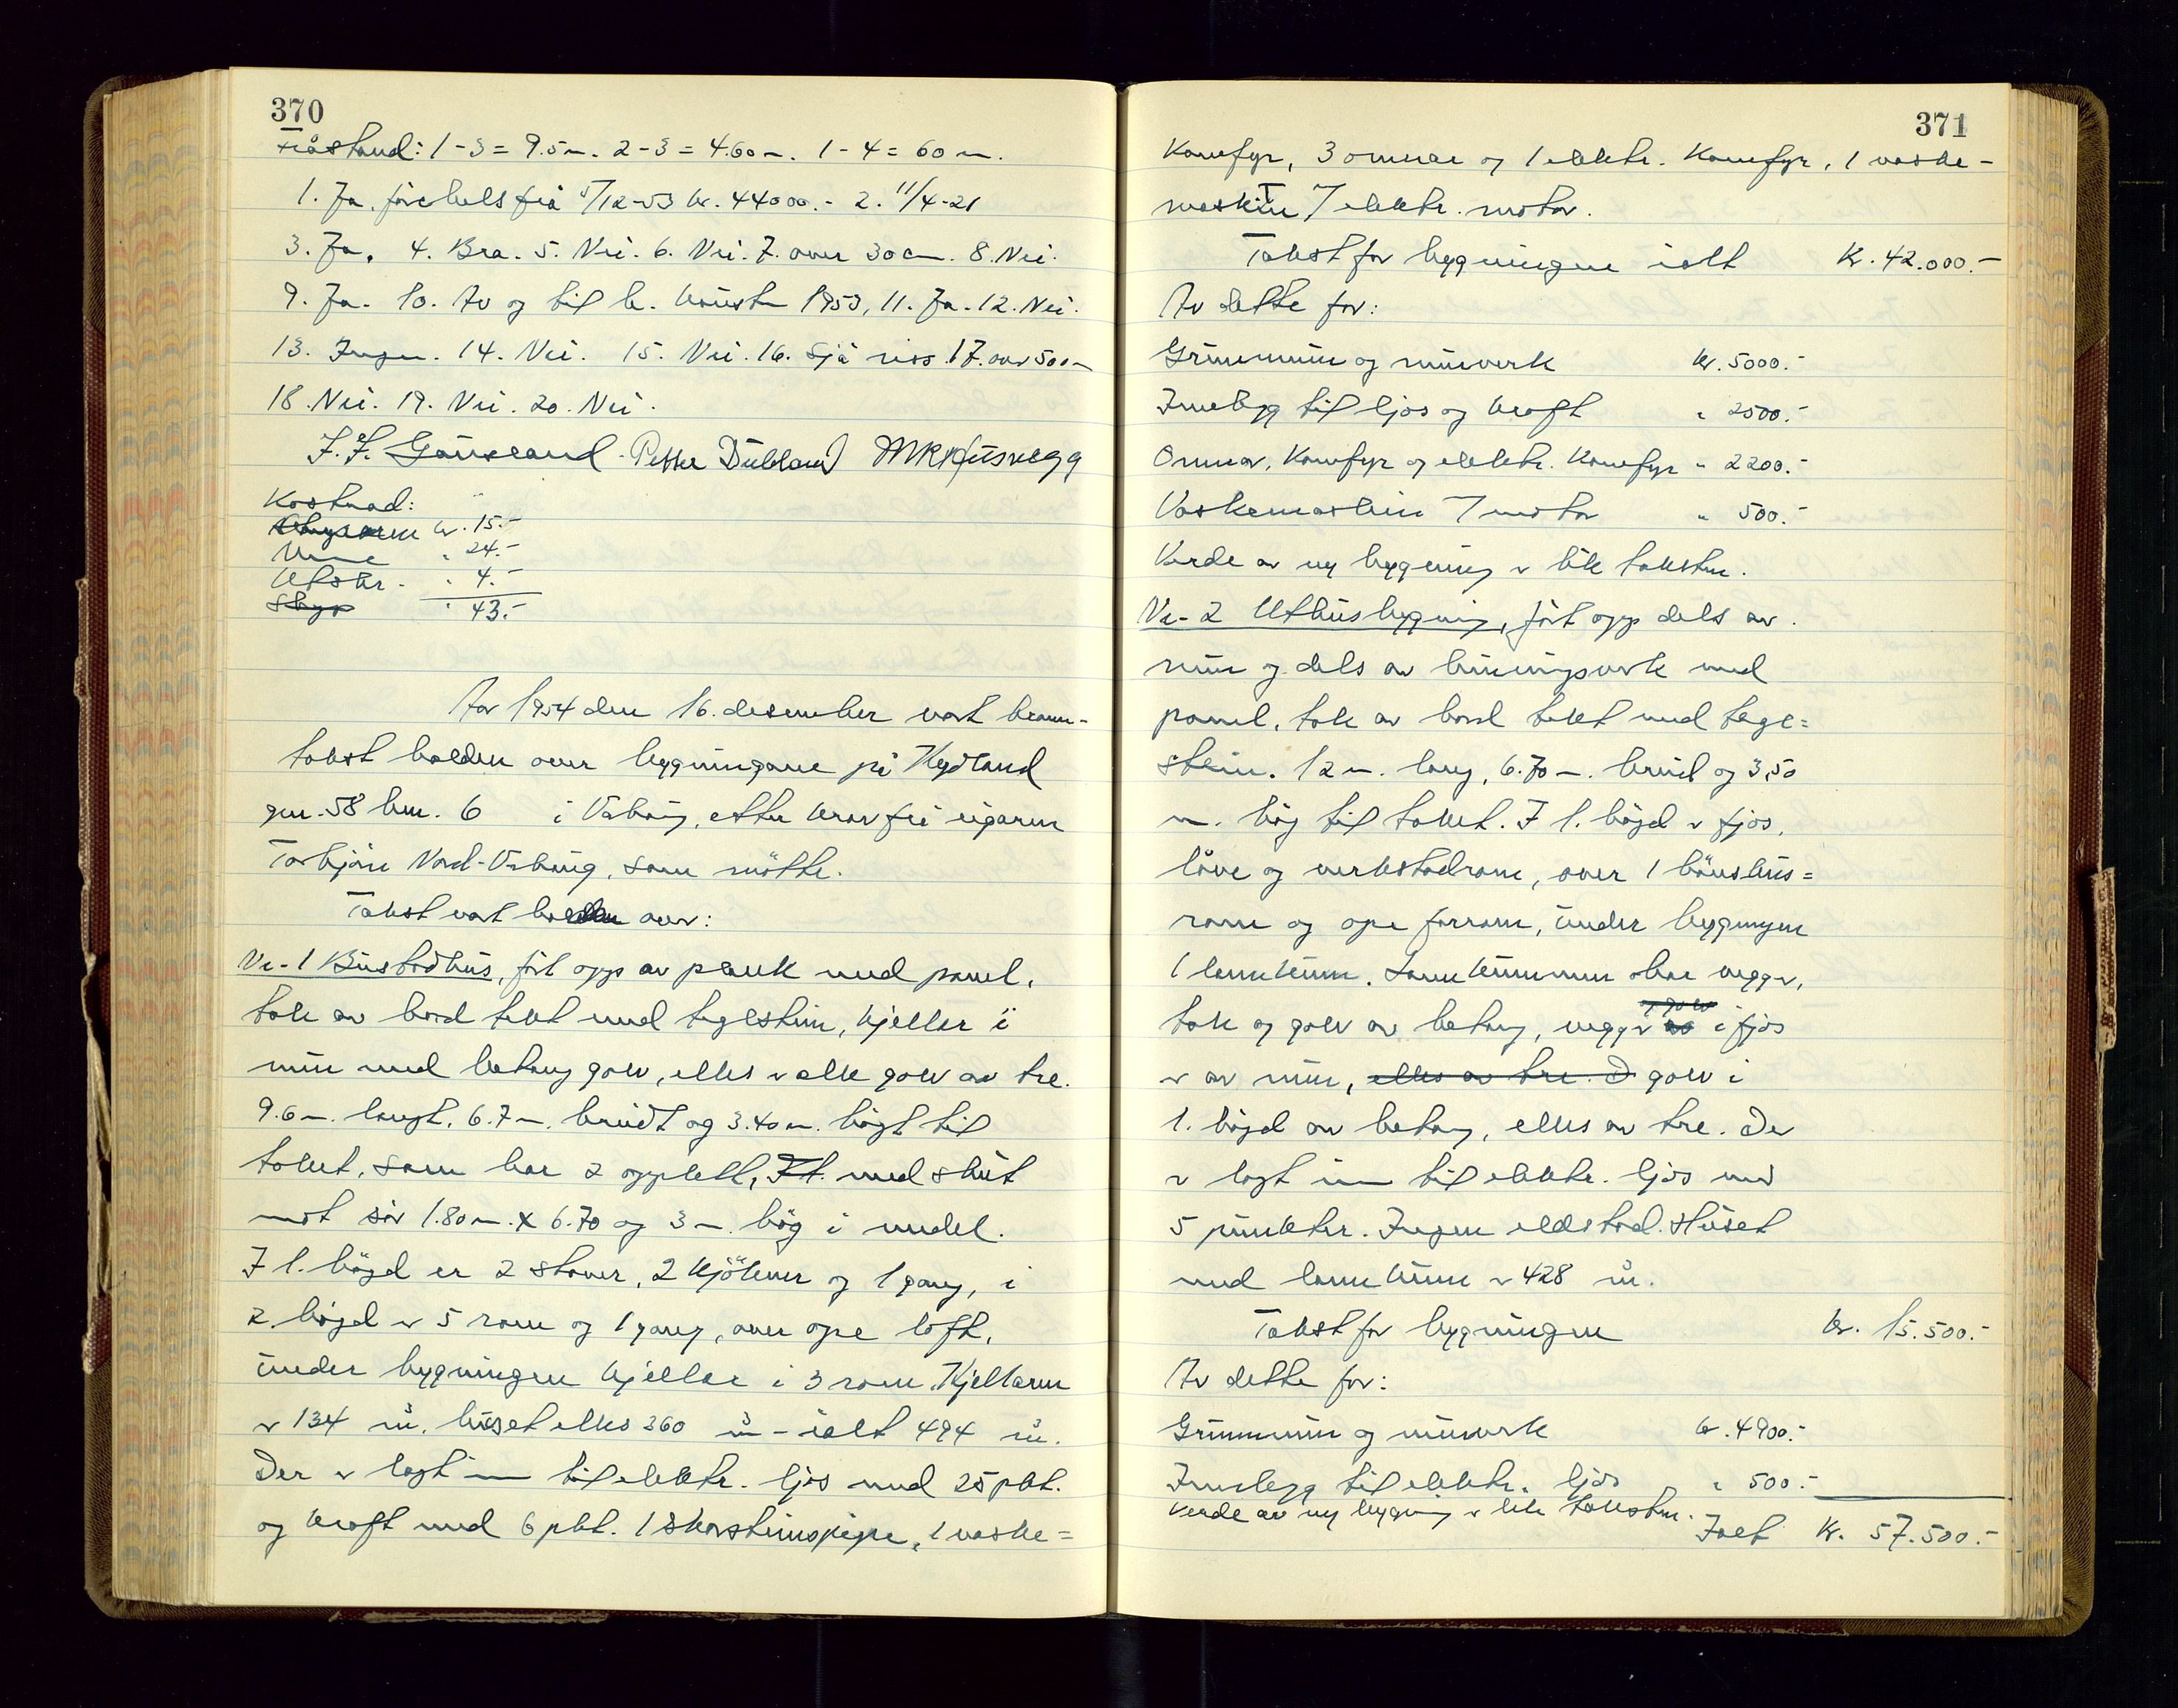 370
Fråstand: 1-3 = 9.5 m. 2-3 = 4.60 m. 1-4 = 60 m.
1. Ja, förehels frå 5/12-53 kr. 44000.- 2. 11/4-21
3. Ja. 4. Bra. 5. Nei. 6. Nei. 7. over 30 cm. 8. Nei.
9. Ja. 10. Av og til b. hausten 1953, 11. Ja. 12. Nei.
13. Ingen. 14. Nei. 15. Nei. 16. Sjå riss. 17. over 500 m
18. Nei. 19. Nei. 20. Nei.
J. J. Gauseland Petter Dubland
Kostnad:
kr. 15.-
" 24.-
Utskr. - " 4.-
Skyss " 43.-
Aar 1954 den 16. desember vart brann-
takst halden over bygningane på Hydland
gnr. 58 bnr. 6 i Vrbaug, etter krav frå eigaren
Torbjörn Nord-Vrbaug, som mötte.
Takst vart halden over:
Nr-1 Bustadhus, fört opp av plank med panel,
tak av bord tekt med teglstein, kjellar i
mur med betong golv, elles er alle golv av tre.
9.6 m. langt, 6.7 m. breidt og 3.40 m. högt til
taket, som har 2 opplett, It. med skut
mot sör 1.80 m. x 6.70 og 3 m. hög i medel.
I 1. högd er 2 stover, 2 kjökener og 1 gang, i
2 högd er 5 rom og 1 gang, over ope loft,
under bygningen kjellar i 3 rom. Kjellaren
er 134 m³. huset elles 360 m³ - ialt 494 m³.
Der er lagt inn til elektr. ljos med 25 pkt.
og kraft med 6 pkt. 1 skorsteinspipe, 1 vaske=
371
Komfyr, 3 omnar og 1 elektr. Komfyr, 1 vaske-
maskin m/ elektr. motor.
Takst for bygningen ialt Kr. 42.000.-
Av dette for:
Grunnmur og murverk kr. 5000.-
Innlegg til ljos og kraft " 2500.-
Omnar, Komfyr og elektr. Komfyr " 2200.-
Vaskemaskin m/ motor " 500.-
Verde av ny bygning er lik taksten.
Nr-2 Uthusbygning, fört opp dels av
mur og dels av bindingsverk med
panel, tak av bord tekt med tegl=
stein. 12 m. lang, 6.70 m. breid og 3,50
m. hög til taket. I 1. högd er fjos,
löve og verkstadrom, over 1 hönsehus=
rom og ope forrom, under bygningen
1 landkum. Landkummen har vegger,
tak og golv av betong, vegger og golv i fjos
er av mur, elles av tre. D golv i
1. högd av betong, elles av tre. Der
er lagt inn til elektr. ljos med
5 punkter. Ingen eldstad. Huset
med landkum er 428 m³.
Takst for bygningen kr. 15.500.-
Av dette for:
Grunnmur og murverk kr. 4900.-
Innlegg til elektr. ljos " 500.-
Verde av ny bygning er lik taksten.
Ialt Kr. 57.500.-